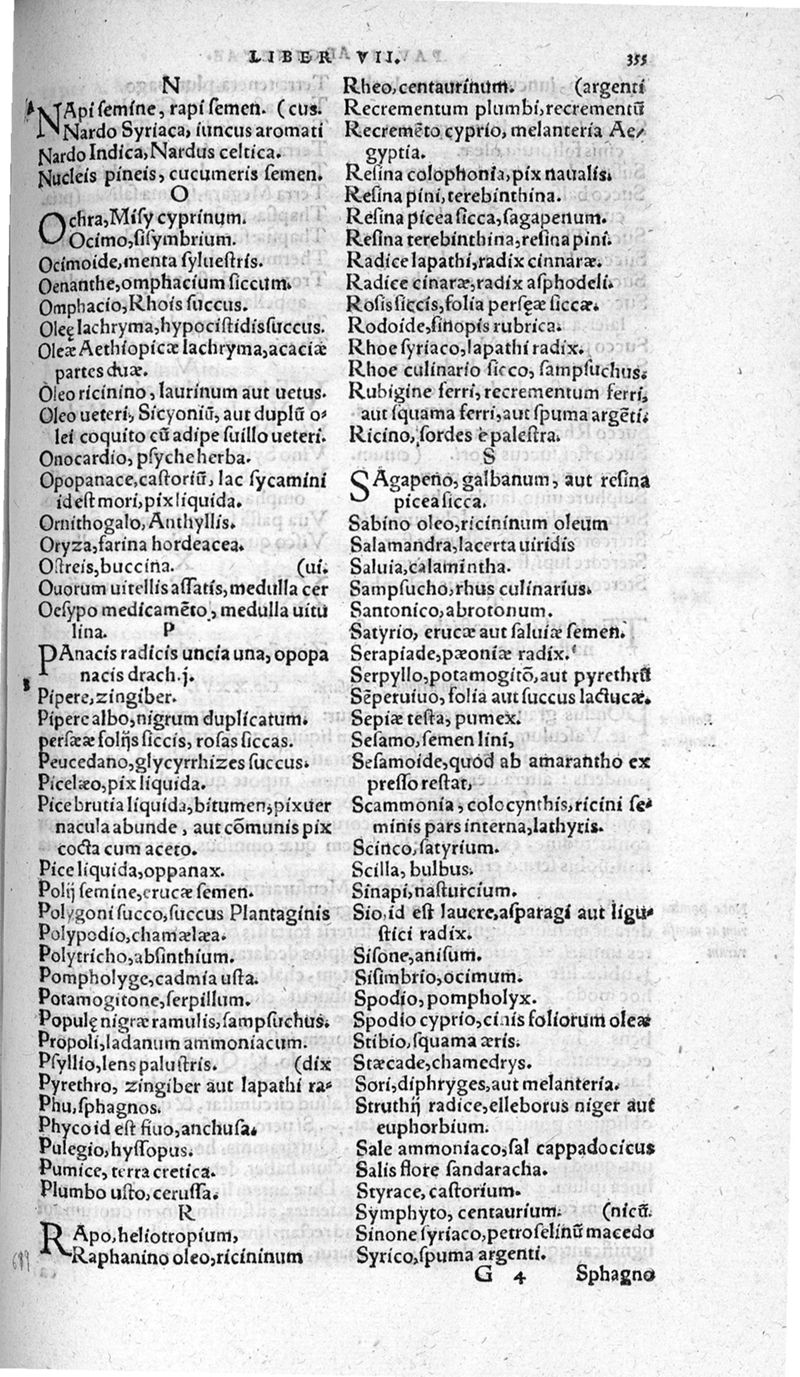 LIBER VII. 355
N
NApi ſemine, rapi ſemen. (cus.
Nardo Syriaca, iuncus aromati
Nardo Indica, Nardus celtica.
Nucleis pineis, cucumeris ſemen.
O
Ochra, Miſy cyprinum.
Ocimo, ſiſymbrium.
Ocimoide, menta ſylueſtris.
Oenanthe, omphacium ſiccum.
Omphacio, Rhois ſuccus.
Oleę lachryma, hypociſtidis ſuccus.
Oleæ Aethiopicæ lachryma, acaciæ
partes duæ.
Oleo ricinino, laurinum aut uetus.
Oleo ueteri, Sicyoniū, aut duplū o-
lei coquito cū adipe ſuillo ueteri.
Onocardio, pſyche herba.
Opopanace, caſtoriū, lac ſycamini
id eſt mori, pix liquida.
Ornithogalo, Anthyllis.
Oryza, farina hordeacea.
Oſtreis, buccina. (ui.
Ouorum uitellis aſſatis, medulla cer
Oeſypo medicamēto, medulla uitu
lina. P
PAnacis radicis uncia una, opopa
nacis drach. j.
Pipere, zingiber.
Pipere albo, nigrum duplicatum.
perſææ folijs ſiccis, roſas ſiccas.
Peucedano, glycyrrhizes ſuccus.
Picelæo, pix liquida.
Pice brutia liquida, bitumen, pix uer
nacula abunde, aut cōmunis pix
cocta cum aceto.
Pice liquida, oppanax.
Polij ſemine, erucæ ſemen.
Polygoni ſucco, ſuccus Plantaginis
Polypodio, chamælæa.
Polytricho, abſinthium.
Pompholyge, cadmia uſta.
Potamogitone, ſerpillum.
Populę nigræ ramulis, ſampſuchus.
Propoli, ladanum ammoniacum.
Pſyllio, lens paluſtris. (dix
Pyrethro, zingiber aut lapathi ra-
Phu, ſphagnos.
Phyco id eſt fiuo, anchuſa.
Pulegio, hyſſopus.
Pumice, terra cretica.
Plumbo uſto, ceruſſa.
R
RApo, heliotropium,
Raphanino oleo, ricininum
Rheo, centaurinum. (argenti
Recrementum plumbi, recrementū
Recremēto cyprio, melanteria Ae-
gyptia.
Reſina colophonia, pix naualis.
Reſina pini, terebinthina.
Reſina picea ſicca, ſagapenum.
Reſina terebinthina, reſina pini.
Radice lapathi, radix cinnaræ.
Radice cinaræ, radix aſphodeli.
Roſis ſiccis, folia perſęæ ſiccæ.
Rodoide, ſinopis rubrica.
Rhoe ſyriaco, lapathi radix.
Rhoe culinario ſicco, ſampſuchus.
Rubigine ferri, recrementum ferri,
aut ſquama ferri, aut ſpuma argēti.
Ricino, ſordes è paleſtra.
S
SAgapeno, galbanum, aut reſina
picea ſicca.
Sabino oleo, ricininum oleum
Salamandra, lacerta uiridis
Saluia, calamintha.
Sampſucho, rhus culinarius.
Santonico, abrotonum.
Satyrio, erucæ aut ſaluiæ ſemen.
Serapiade, pæoniæ radix.
Serpyllo, potamogitō, aut pyrethrū
Sēperuiuo, folia aut ſuccus lactucæ.
Sepiæ teſta, pumex.
Seſamo, ſemen lini,
Seſamoide, quod ab amarantho ex
preſſo reſtat,
Scammonia, colocynthis, ricini ſe-
minis pars interna, lathyris.
Scinco, ſatyrium.
Scilla, bulbus.
Sinapi, naſturcium.
Sio, id eſt lauere, aſparagi aut ligu-
ſtici radix.
Siſone, aniſum.
Siſimbrio, ocimum.
Spodio, pompholyx.
Spodio cyprio, cinis foliorum oleæ
Stibio, ſquama æris.
Stæcade, chamedrys.
Sori, diphryges, aut melanteria.
Struthij radice, elleborus niger aut
euphorbium.
Sale ammoniaco, ſal cappadocicus
Salis flore ſandaracha.
Styrace, caſtorium.
Symphyto, centaurium. (nicū.
Sinone ſyriaco, petroſelinū macedo
Syrico, ſpuma argenti.
G 4 Sphagno